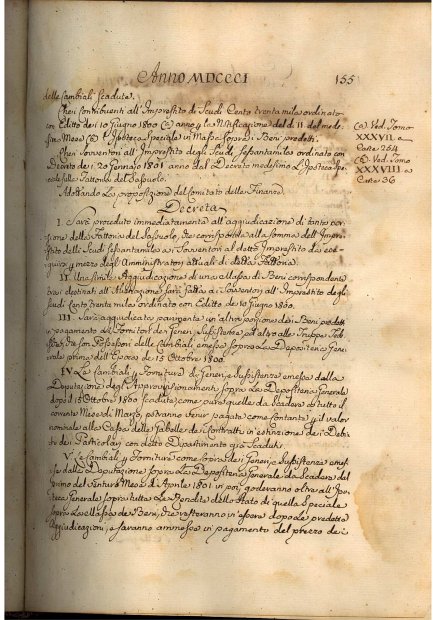 Anno MDCCCI 155
delle Cambiali Scadute.
Che i Contribuenti all'Imprestito de' Scudi Cento trenta mila ordinato
con Editto dei 10 Giugno 1800 (a) anno la Notificazione del dì 11 del mede-
simo Mese Ipoteca Speciale in Massa sopra i Beni predetti.
Che i Sovventori all'Imprestito degli Scudi sessantamila ordinato con
Decreto dei 20 Gennajo 1801 anno dal Decreto medesimo l'Ipoteca Spe-
ciale sulla Fattoria del Sassuolo.
Adottando la proposizione del Comitato delle Finanze.
(a) Ved. Tomo
XXXVII a
Carte 254
(b) Ved. Tomo
XXXVIII a
Carte 36
Decreta
I. Sarà proceduto immediatamente all'aggiudicazione di tanta por-
zione della Fattoria del Sassuolo, che corrisponda alla Somma dell'Impre-
stito delli Scudi sessantamila ai Sovventori al detto Imprestito da ese-
guirsi per mezzo degli Amministratori attuali di detta Fattoria.
II. Una simile Aggiudicazione di una Massa di Beni corrispondente
trai destinati all'Alienazione sarà fatta ai Sovventori all'Imprestito degli
Scudi Cento trenta mila ordinato con Editto de 10 Giugno 1800.
III. Sarà aggiudicata parimente un'altra porzione dei Beni predetti
in pagamento dei Fornitori de Generi, e Sussistenze
che son Possessori delle Cambiali emesse sopra la Depositeria Gene-
rale prima dell'Epoca de' 15 Ottobre 1800.
IV. Le Cambiali, e Forniture di Generi, e Sussistenza emesse dalla
Deputazione degli Approvvisionamenti sopra la Depositeria Generale
dopo il 15 Ottobre 1800 Scadute, come pure quelle da Scadere a tutto il
corrente Mese di Marzo, potranno venir pagate come contante per il valor
nominale alle Casse delle Pubbliche in estinzione dei Debi-
ti dei Particolari con detto Dipartimento già Scaduti.
V. Le Cambiali, e Forniture come sopra dei Generi, e Sussistenza emes-
se dalla Deputazione sopra la Depositeria Generale da Scadere dal
primo del venturo Mese di Aprile 1801 in poi, goderanno oltre all'Ipo-
teca Generale sopra tutte le Rendite dello Stato di quella Speciale
sopra la Massa dei Beni, che resteranno in essere dopo le predette
Aggiudicazioni, e saranno ammesse in pagamento del prezzo dei